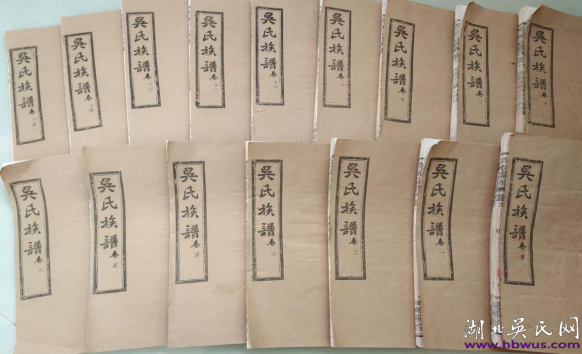 吳氏族譜 卷
吳氏族譜 卷
吳氏族譜 卷十三
吳氏族譜 卷十二
吳氏族譜 卷十一
吳氏族譜 卷十
吳氏族譜 卷九
吳氏族譜 卷
吳氏族譜 卷
吳氏族譜 卷六
吳氏族譜 卷五
吳氏族譜 卷四
吳氏族譜 卷三
吳氏族譜 卷二
吳氏族譜 卷一
吳氏族譜 卷首
湖北吴氏网
www.hbwus.com